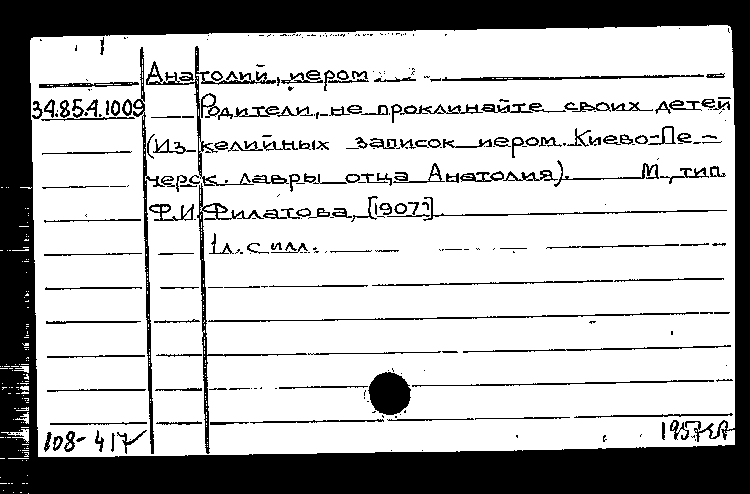 Анатолий, иером
34.85.4.1009 Родители, не проклинайте своих детей
(Из келийных записок иером. Киево-Пе-
черск. лавры отца Анатолия). М., тип.
Ф.И. Филатова, [1907].
1л. с илл.
108-417